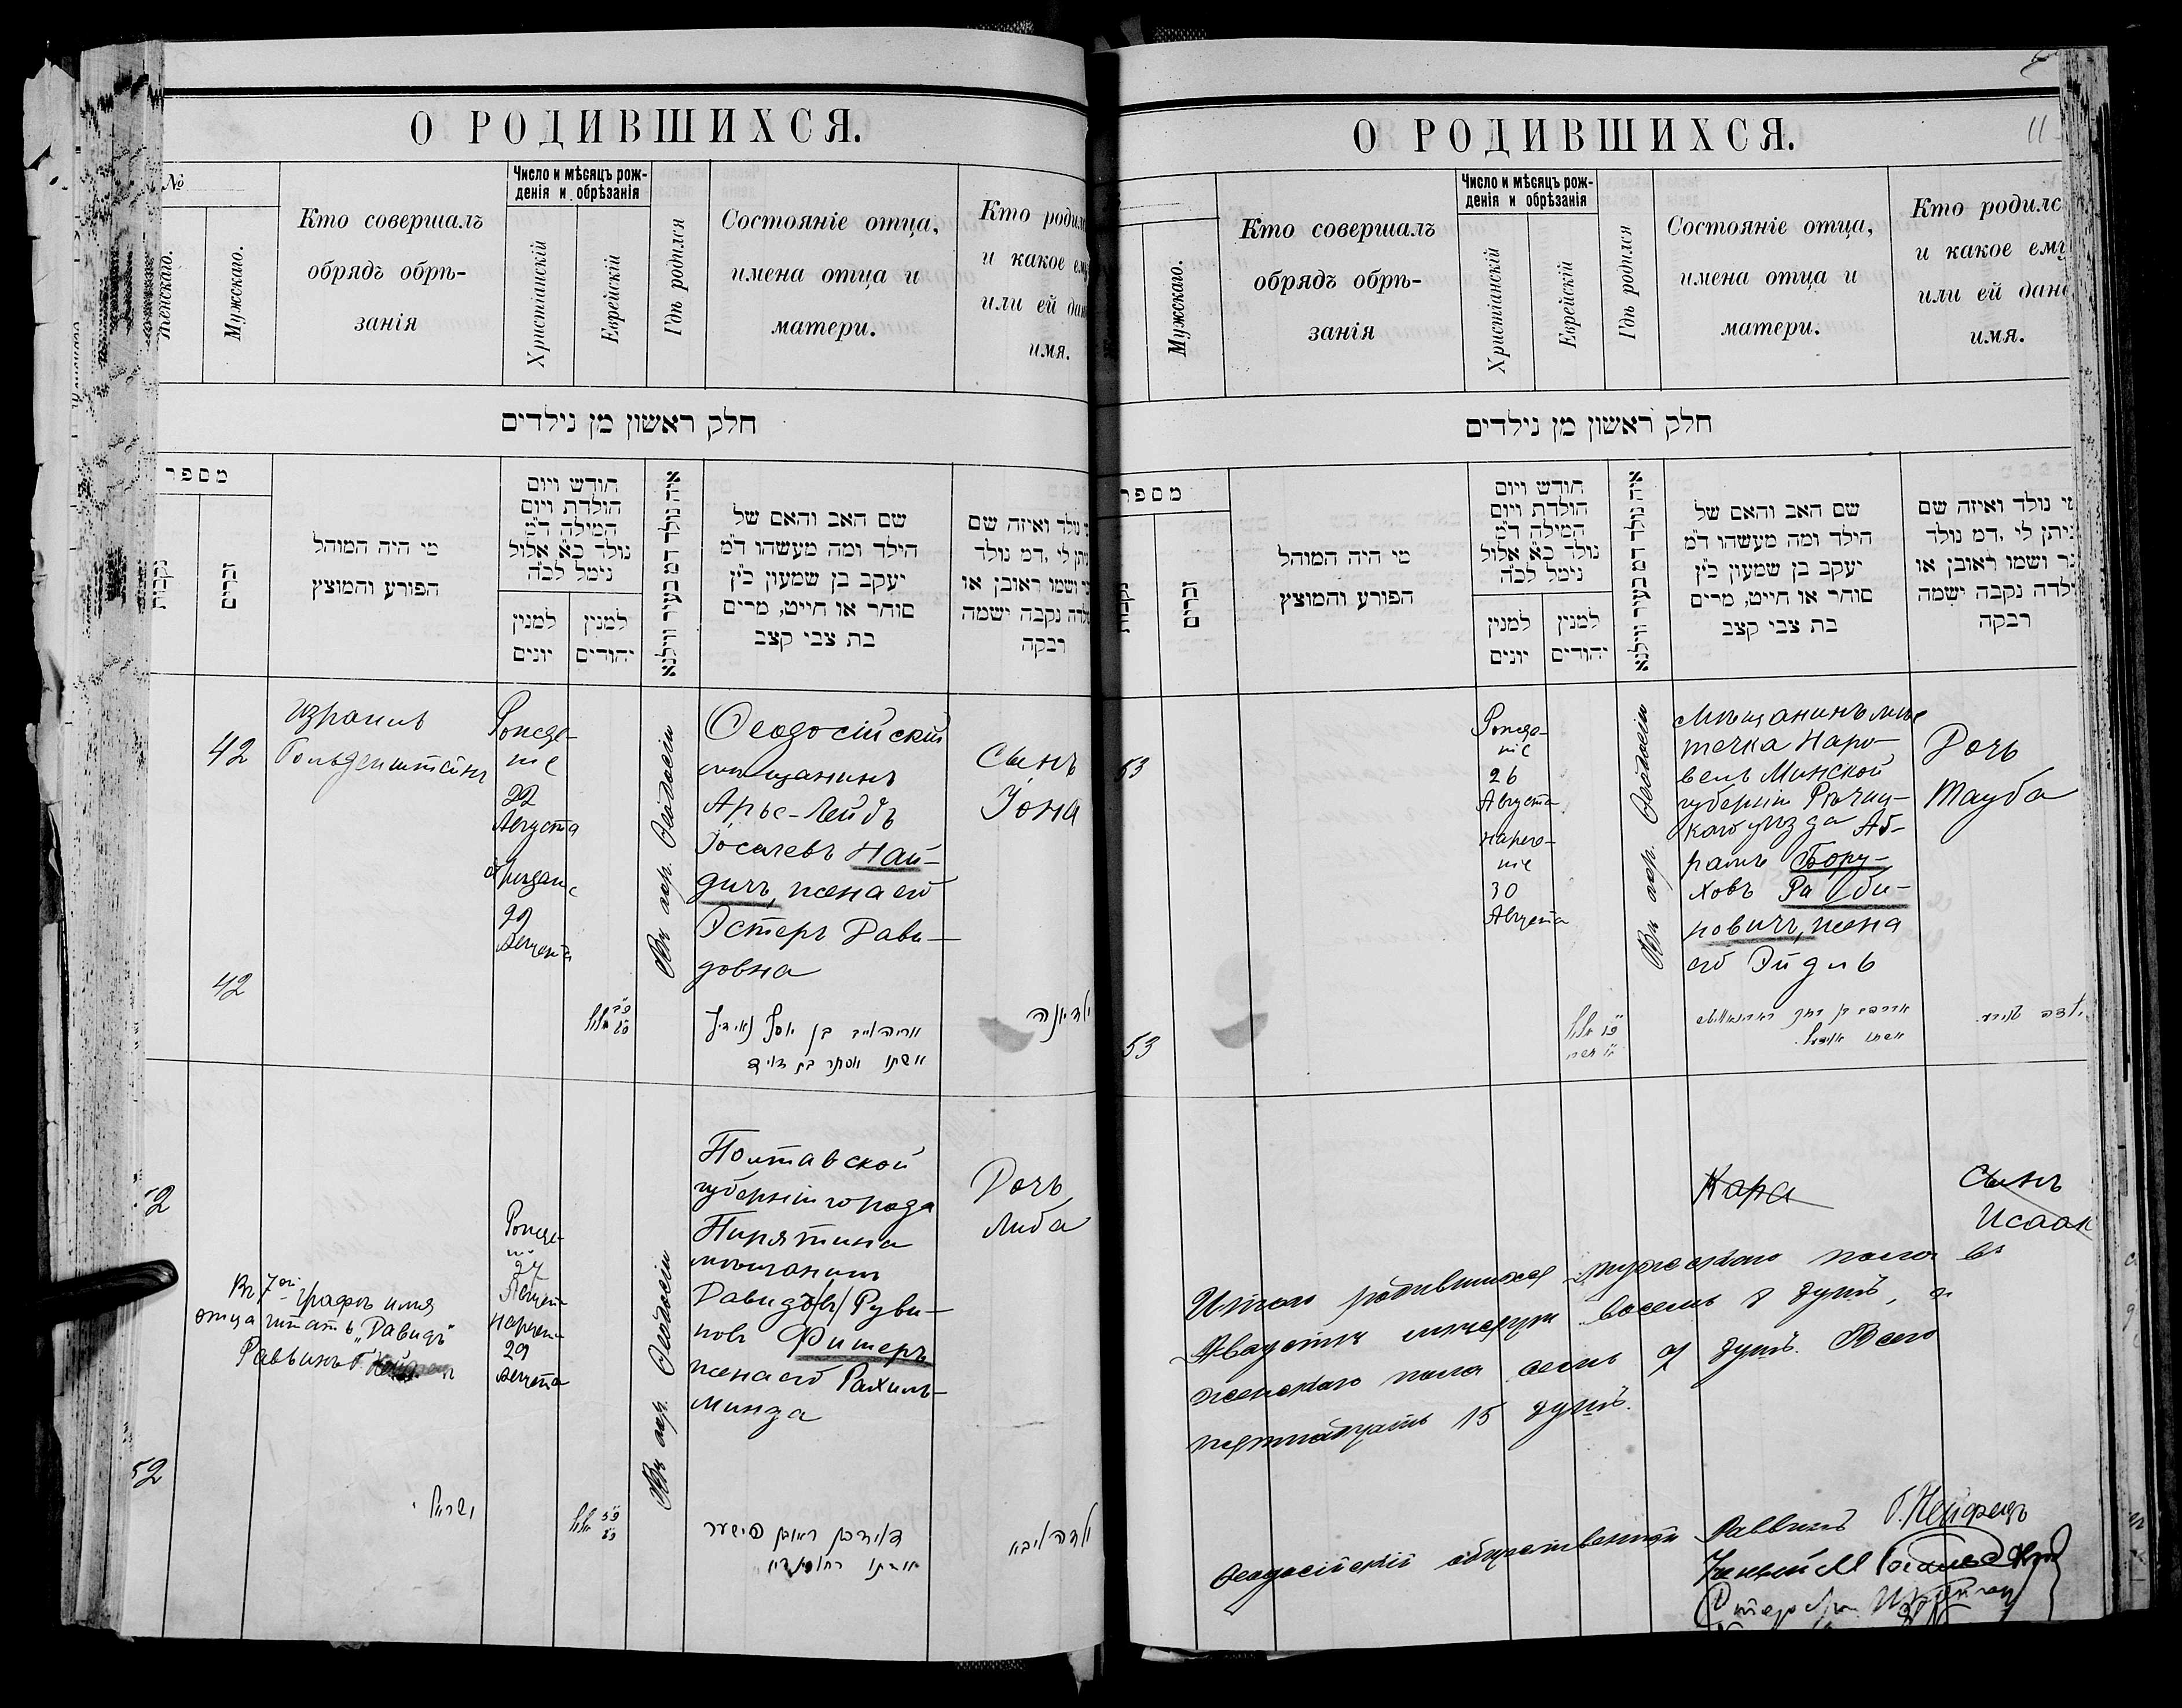 О РОДИВШИХСЯ.
№
Женскаго.
Мужскаго.
Кто совершалъ
обрядъ обрѣ-
занія
Число и мѣсяцъ рож-
денія и обрѣзанія
Христіанскій
Еврейскій
Гдѣ родился
Состояніе отца,
имена отца и
матери.
Кто родилс
и какое ему
или ей дан
имя.
חלק ראשון מן נילדים
מספר
נקבות
זכרים
מי היה המוהל
הפורע והמוצץ
חודש ויום
הולדת ויום
המילה ד״מ
נולד כ״א אלול
נימל לכ״ה
למנין
יונים
למנין
יהודים
איה נולד דמ בעיר ווילנא
שם האב והאם של
הילד ומה מעשהו ד״מ
יעקב בן שמעון כ״ץ
סוחר או חייט, מרים
בת צבי קצב
נולד ואיזה שם
ניתן לי, דמ נולד
ושמו ראובן או
ילדה נקבה ישמה
רבקה
42
Израиль
Гольденштейнъ
Рожде-
ніе
22
Августа
обрѣзаніе
29
Августа
Въ гор. Ѳеодосіи
Ѳеодосійскій
мѣщанинъ
Арье-Лейбъ
Іосилевъ Най-
дичъ, жена его
Эстеръ Дави-
довна
Сынъ
Іона
42
אריה לייב בן יוסף נאידיץ
אשתו אסתר בת דוד
ילד יונה
52
Въ 7ой графѣ имя
отца читать „Давидъ"
Раввинъ Г.
Рожде-
ніе
27
Август
нарече-
29
Августа
Въ гор. Ѳеодосіи
Полтавской
губерніи города
Пирятина
мѣщанинъ
Давидовъ Руви-
новъ Фишеръ
жена его Рахиль-
Минда
Дочь
Либа
52
דוד בן ראובן פישער
ילדה ליבא
О РОДИВШИХСЯ.
11
Мужскаго.
Кто совершалъ
обрядъ обрѣ-
занія
Число и мѣсяцъ рож-
денія и обрѣзанія
Христіанскій
Еврейскій
Гдѣ родился
Состояніе отца,
имена отца и
матери.
Кто родилс
и какое ему
или ей дано
имя.
חלק ראשון מן נילדים
מספר
נקבות
זכרים
מי היה המוהל
הפורע והמוצץ
חודש ויום
הולדת ויום
המילה ד״מ
נולד כ״א אלול
נימל לכ״ה
למנין
יונים
למנין
יהודים
איה נולד דמ בעיר ווילנא
שם האב והאם של
הילד ומה מעשהו ד״מ
יעקב בן שמעון כ״ץ
סוחר או חייט, מרים
בת צבי קצב
מי נולד ואיזה שם
ניתן לי, דמ נולד
ושמו ראובן או
ילדה נקבה ישמה
רבקה
53
Рожде-
ніе
26
Августа
нарече-
ніе
30
Августа
Въ гор. Ѳеодосіи
Мѣщанинъ мѣс
течка Наро-
вель Минской
губерніи Рѣчиц-
каго уѣзда Аб-
рамъ Бору-
ховъ Раби-
новичъ, жена
его Эйдль
Дочь
Тауба
53
Кара
Сынъ
Исаак
Итого родившихся мужескаго пола въ
Августѣ мѣсяцѣ восемь 8 душъ, а
женскаго пола семь 7 душъ. Всего
пятнадцать 15 душъ.
Ѳеодосійскій общественный Раввинъ Г. Нейфелдъ
Ученый М
Староста